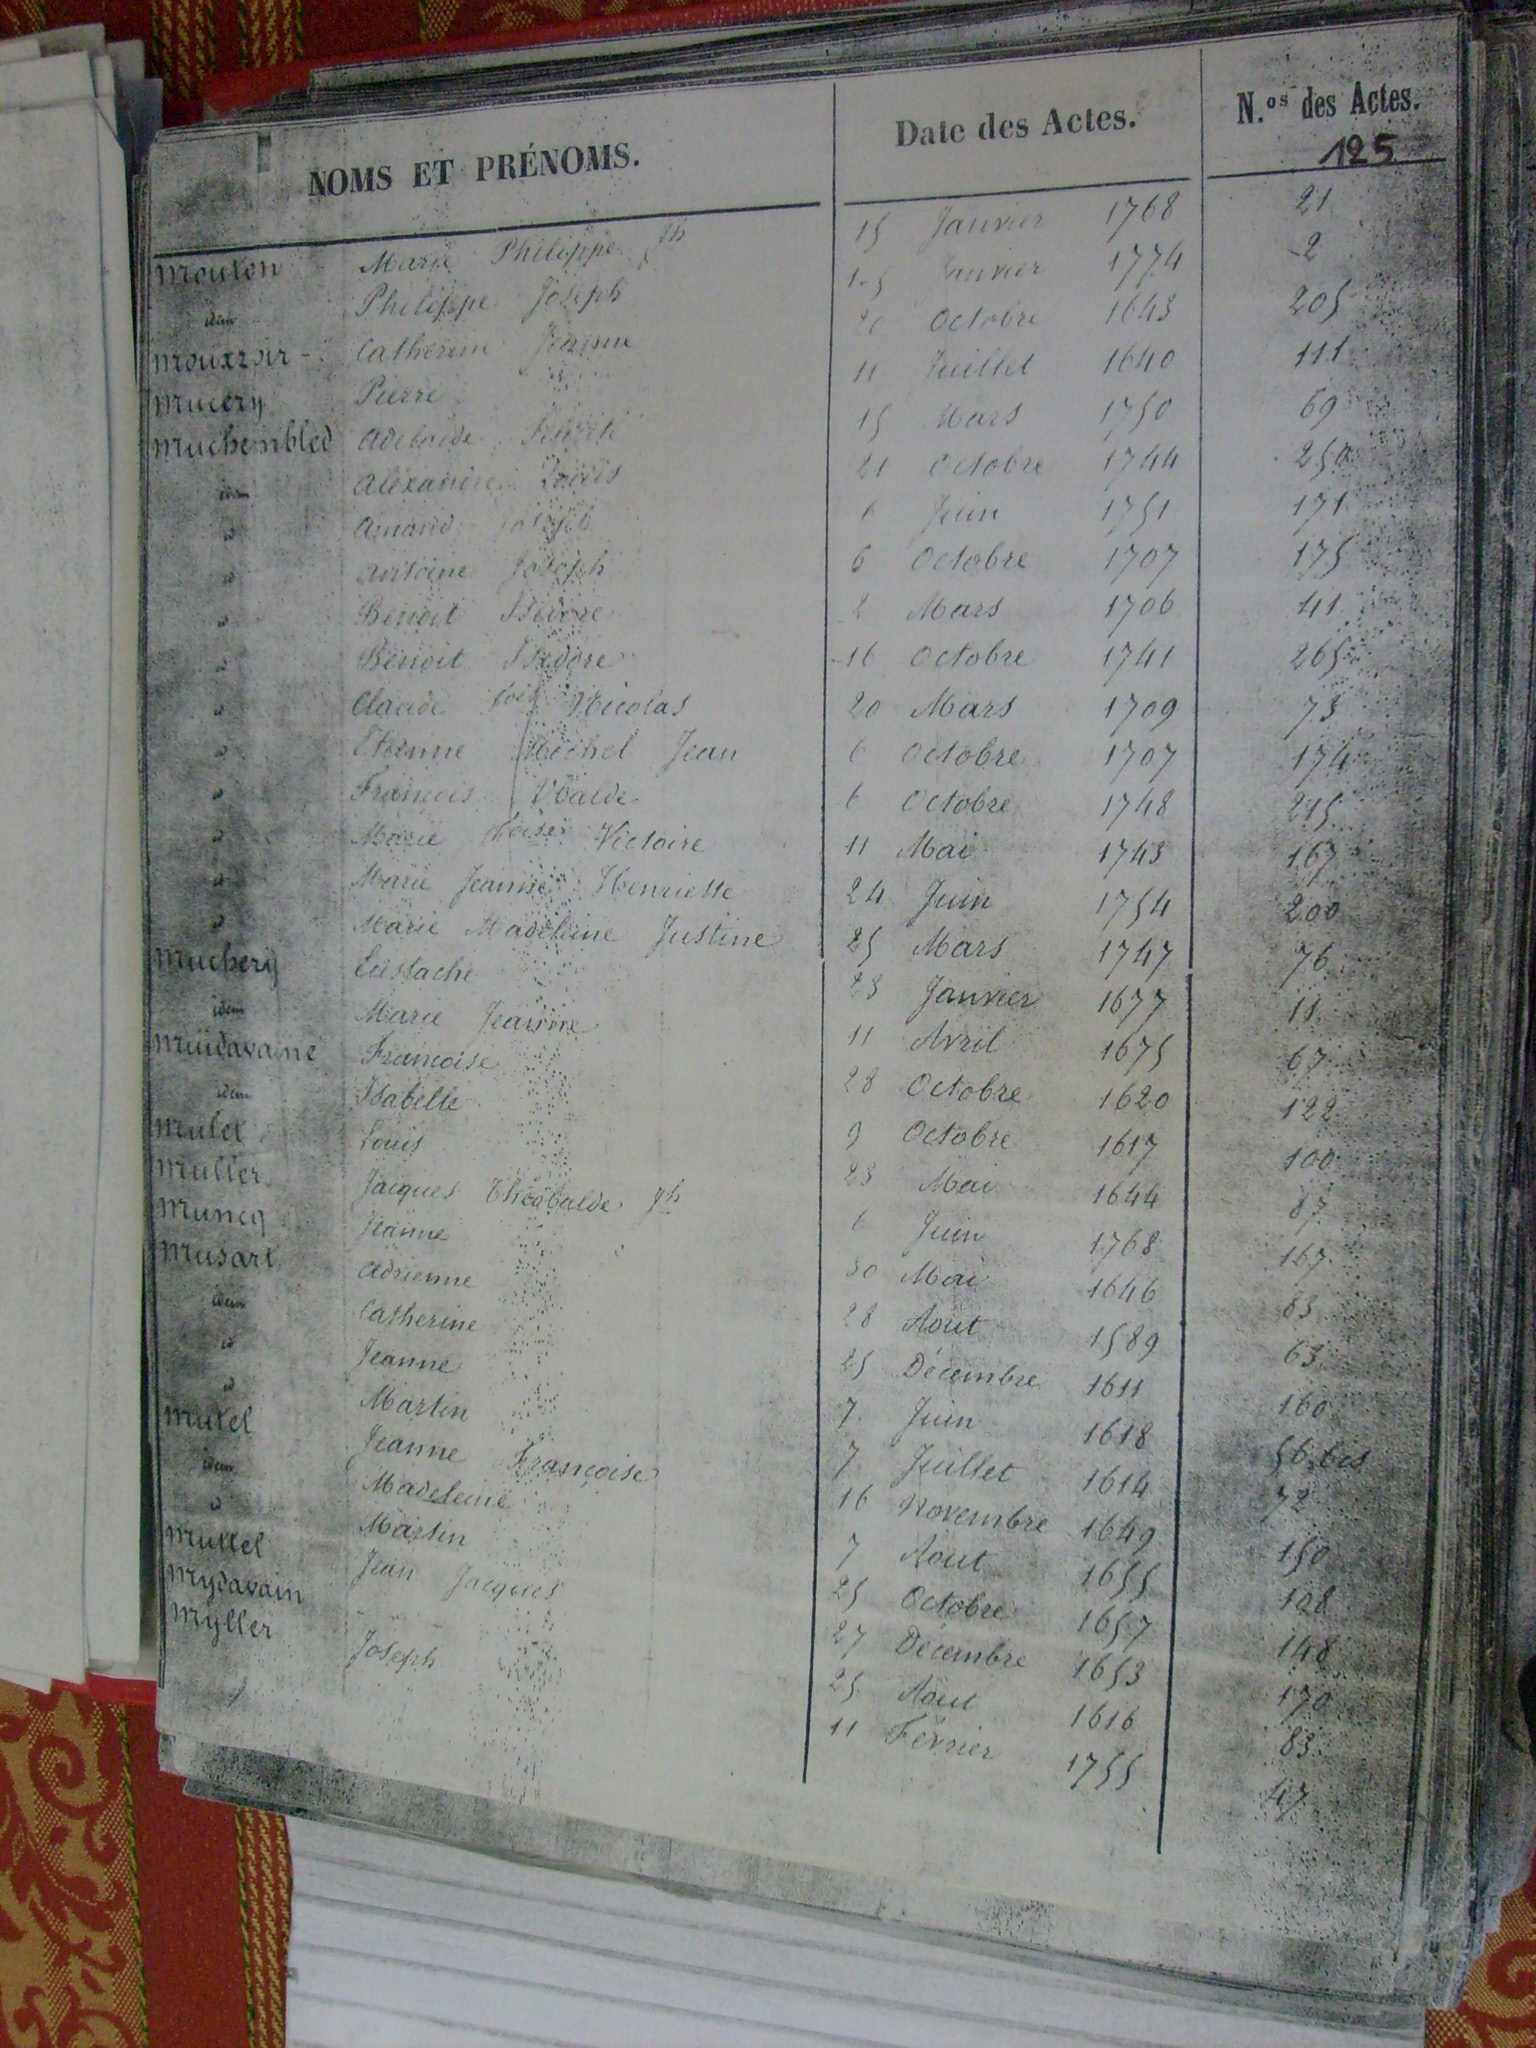 NOMS ET PRÉNOMS. Date des Actes. N.os des Actes.
125
Mouton Marie Philippe Jh 15 Janvier 1768 21
idem Philippe Joseph 15 Janvier 1774 2
Mouxzoir Catherine Jeanne 20 Octobre 1643 205
Mucery Pierre 11 Juillet 1640 111
Muchembled Adelaide Félicité 15 Mars 1750 69
idem Alexandre Louis 21 Octobre 1744 250
id Amand Joseph 6 Juin 1751 171
id Antoine Joseph 6 Octobre 1707 175
id Benoit Isidore 2 Mars 1706 41
id Benoit Isidore 16 Octobre 1741 265
id Claude fois Nicolas 20 Mars 1709 73
id Etienne Michel Jean 6 Octobre 1707 174
id François Ubalde 6 Octobre 1748 215
id Marie Victoire 11 Mai 1743 167
id Marie Jeanne Henriette 24 Juin 1754 200
id Marie Madeleine Justine 25 Mars 1747 76
Muchery Eustache 23 Janvier 1677 11
idem Marie Jeanne 11 Avril 1675 67
Muidavaine Francoise 28 Octobre 1620 122
idem Isabelle 9 Octobre 1617 100
Mulet Louis 23 Mai 1644 87
Muller Jacques Théobalde Jh 6 Juin 1768 167
Muncq Jeanne 30 Mai 1646 83
Musart Adrienne 28 Aout 1589 63
idem Catherine 25 Décembre 1611 160
id Jeanne 7 Juin 1618 56 bis
id Martin 7 Juillet 1614 72
Mutel Jeanne Françoise 16 Novembre 1649 150
idem Madeleine 7 Aout 1655 128
id Martin 25 Octobre 1657 148
Muttel Jean Jacques 27 Décembre 1653 170
Mydavain 25 Aout 1616 83
Myller Joseph 11 Février 1755 47